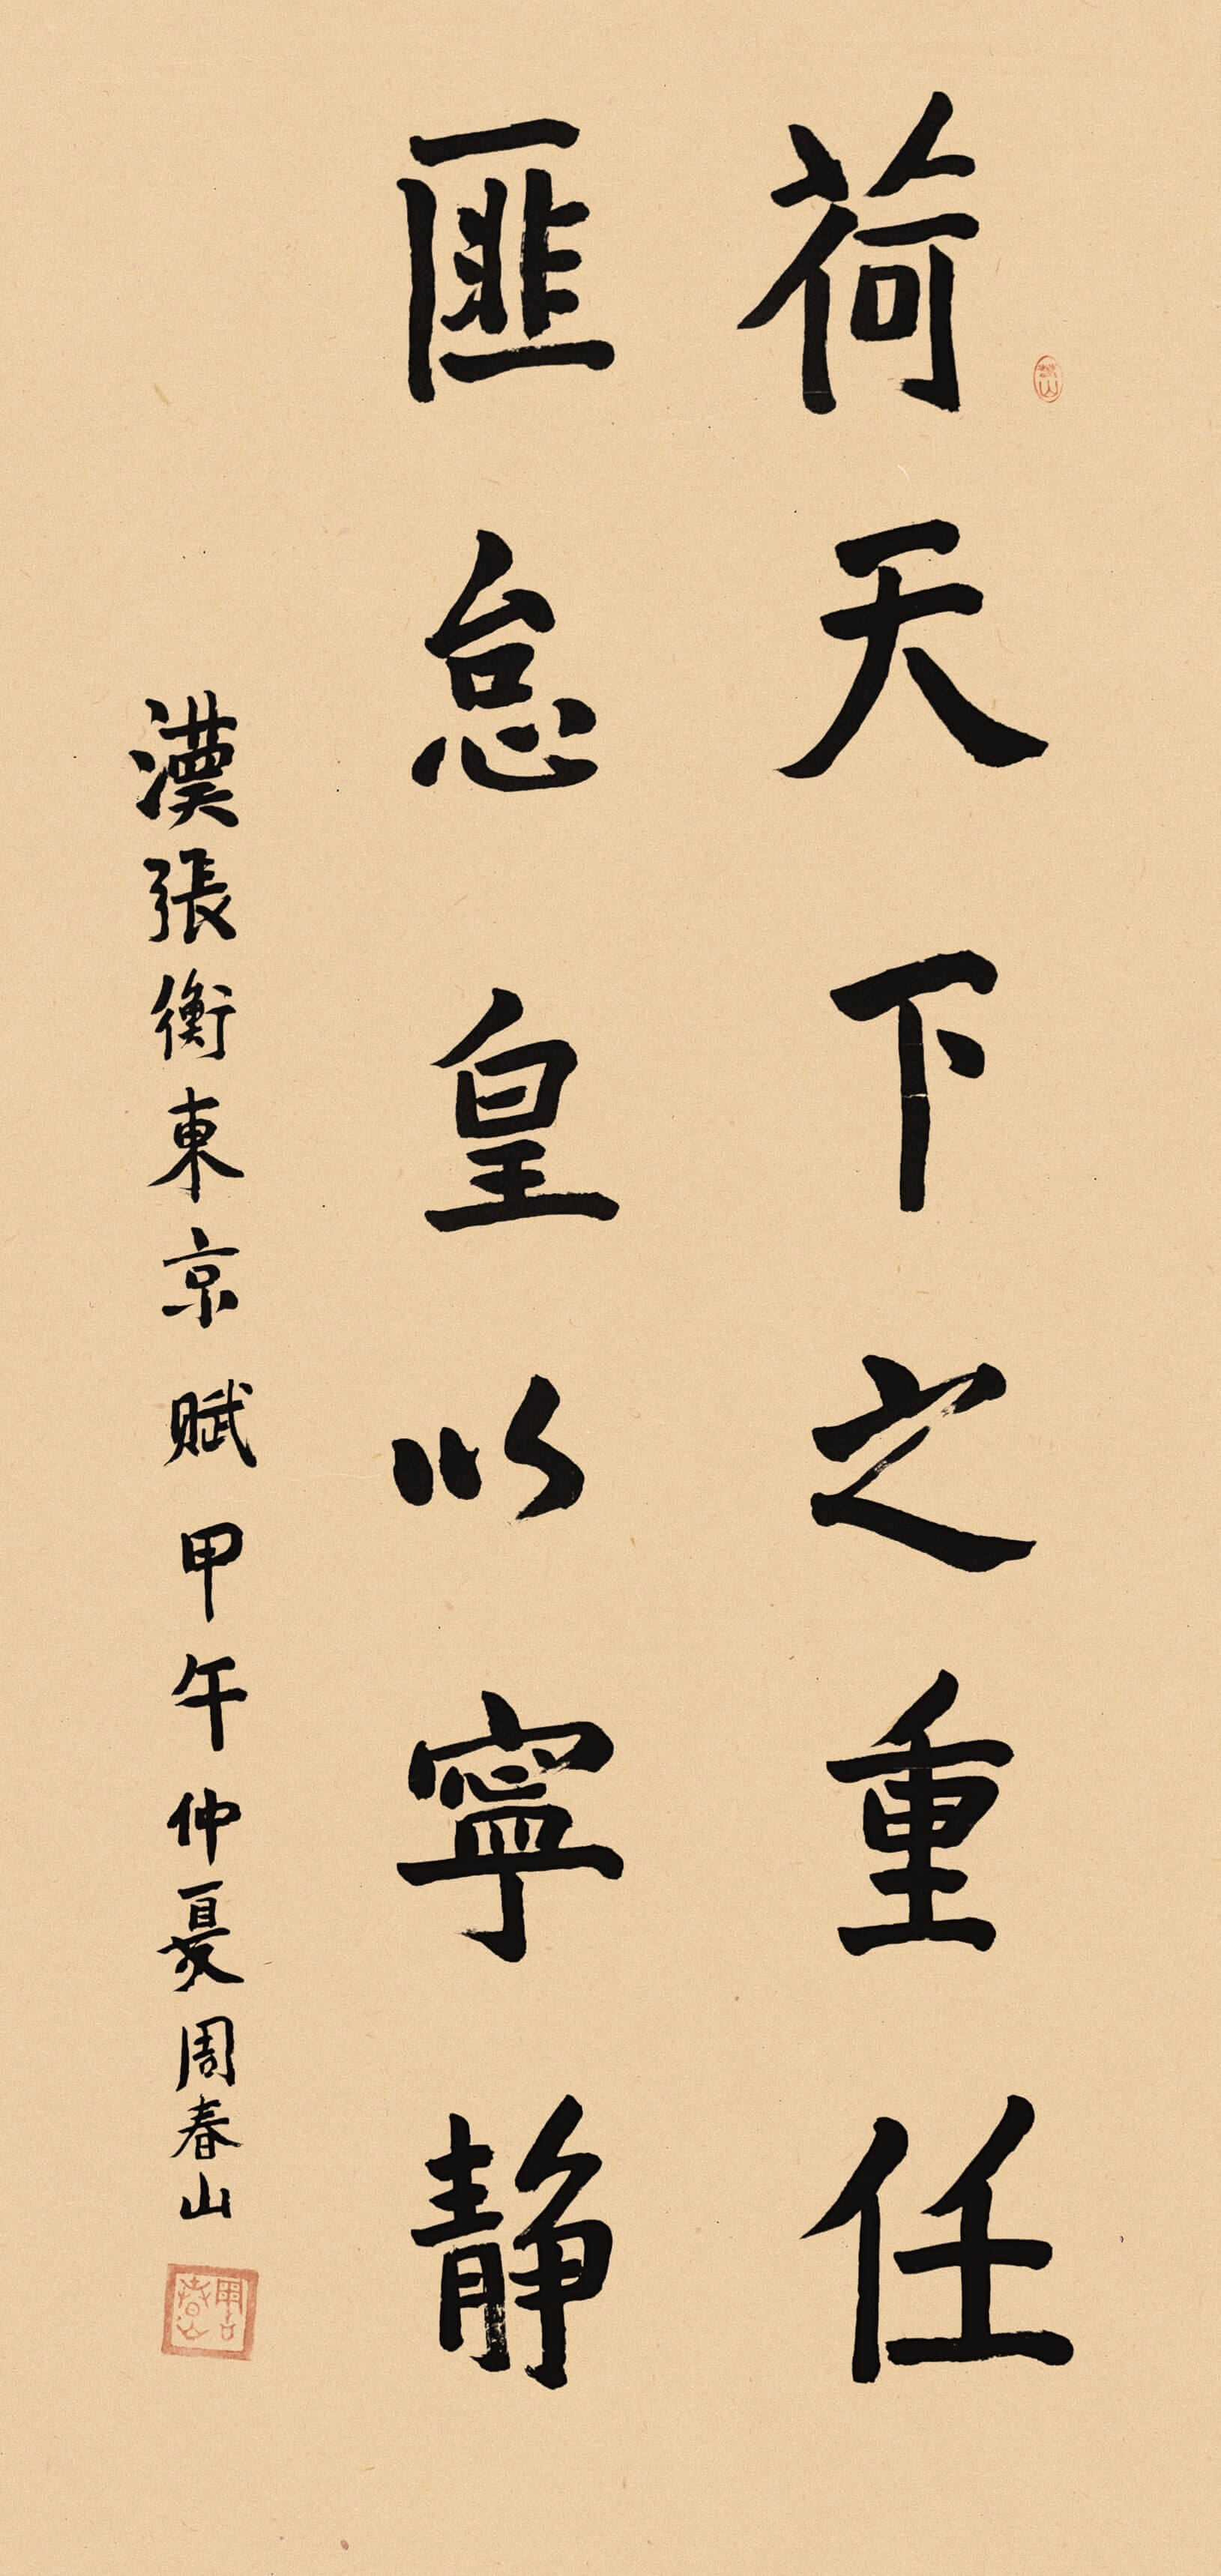 荷天下之重任
匪怠皇以寧静
漢張衡東京賦甲午仲夏周春山
周春山